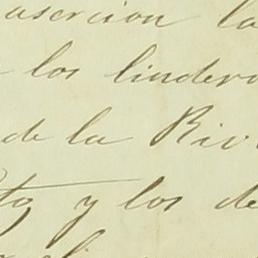 asercion la
los lindero
de la Riv
y los de